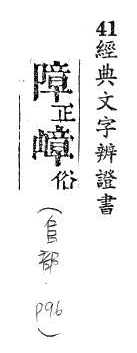 41經典文字辨證書
障正嶂俗
(𨸏部 P96)